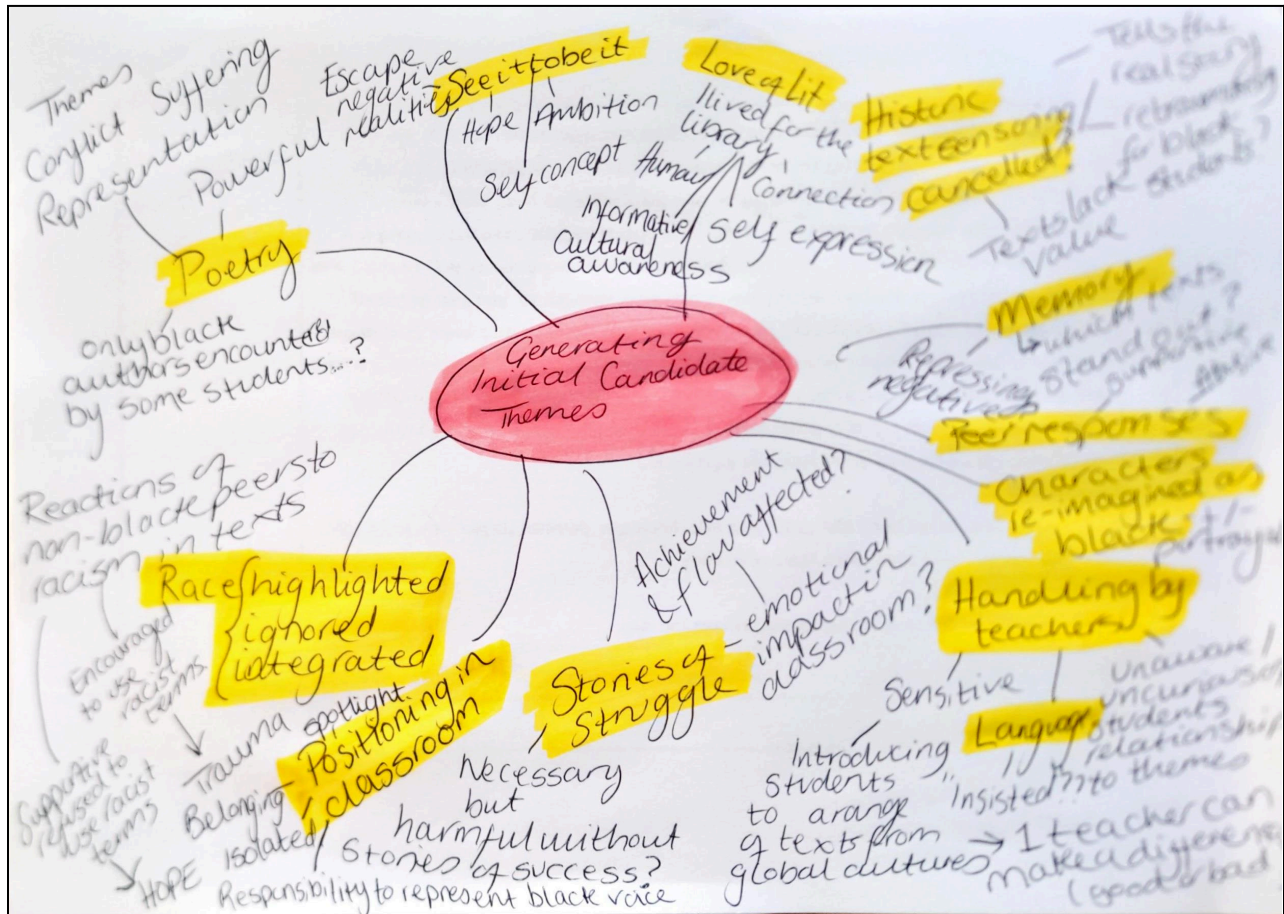 Generating
Initial Candidate
Themes
Themes
Conflict Suffering
Representation
Powerful
Poetry
only black
authors encountered
by some students....?
Escape
negative
realities.
See it to be it
Hope Ambition
Self concept
Love of Lit
I lived for the
library
Human
Connection
Informative
Cultural
awareness
Self expression
Historic
text censoring
cancelled?
Tells the
real story
for black
students?
Texts lack
value
Memory
which texts
stand out?
Repressing
negative
supportive
Peer responses
Characters
re-imagined as
black +/-
portrayal
Handling by
teachers
Sensitive
Introducing
students
to a range
of texts from
global cultures
Language
"Insisted"??
unaware/
uncurious of
students
relationship
to themes
→ 1 teacher can
make a difference
(good or bad
Achievement
& flow affected?
Stories of
Struggle
emotional
impact in
classroom?
Necessary
but
harmful without
stories of success?
Positioning in
classroom
spotlight
Trauma
Belonging
isolated
Responsibility to represent black voice
Race highlighted
ignored
integrated
Reactions of
non-black peers to
racism in texts
Encouraged
to use
racist
terms.
Supportive
refused to
use racist
terms
HOPE